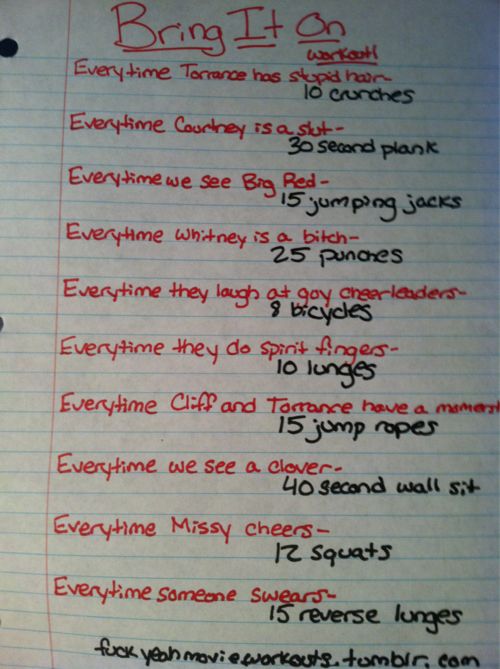 Bring It On
workout!
Everytime Torrance has stupid hair-
10 crunches
Everytime Courtney is a slut-
30 second plank
Everytime we see Big Red-
15 jumping jacks
Everytime Whitney is a bitch-
25 punches
Everytime they laugh at gay cheerleaders-
8 bicycles
Everytime they do spirit fingers-
10 lunges
Everytime Cliff and Torrance have a moment
15 jump ropes
Everytime we see a clover-
40 second wall sit
Everytime Missy cheers-
12 squats
Everytime someone swears-
15 reverse lunges
fuckyeahmovieworkouts.tumblr.com